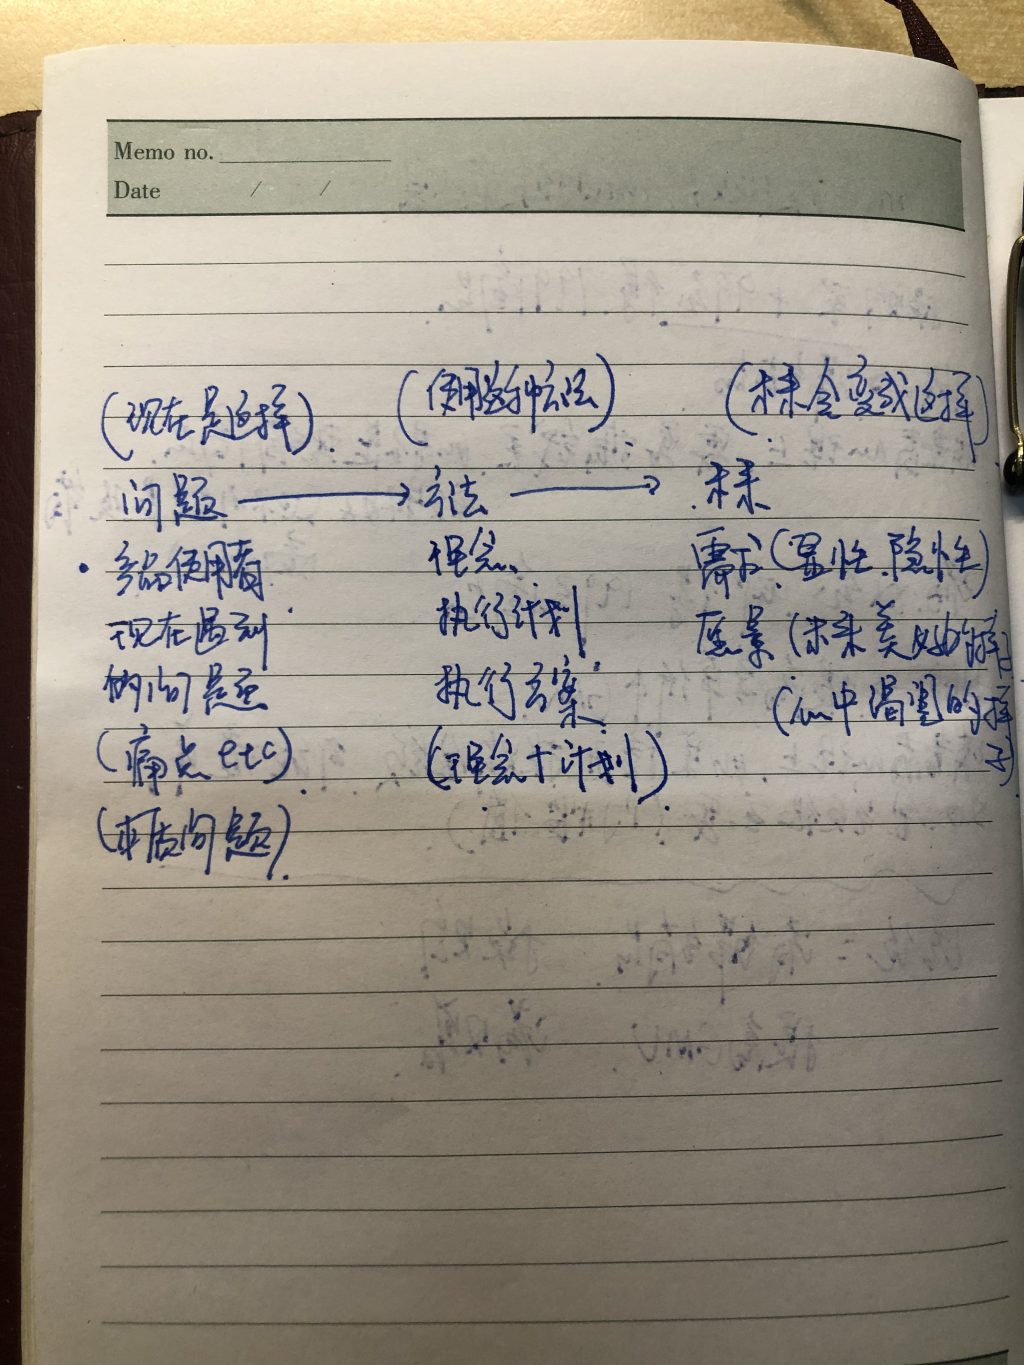 Memo no.
Date / /
(现在是这样) (使用这种方法) (未来会变成这样)
问题 → 方法 → 未来
• 产品使用者 理念 需求(显性、隐性)
现在遇到 执行计划 愿景(未来美妙的样子)
的问题 执行方案 (心中渴望的样子)
(痛点etc) (理念+计划)
(本质问题)